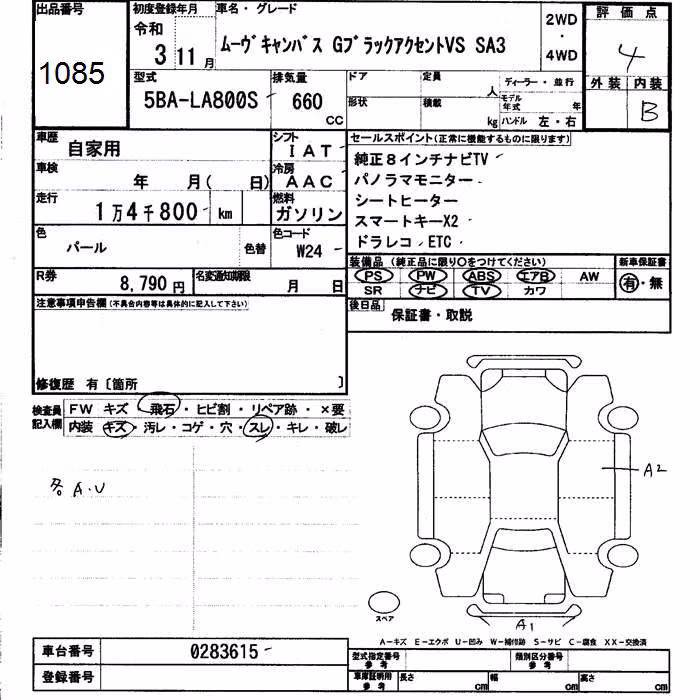 出品番号
1085
初度登録年月
令和
3 11 月
車名・グレード
ムーヴキャンバス GブラックアクセントVS SA3
2WD
・
4WD
評価点
4
外装 内装
B
型式
5BA-LA800S
排気量
660
CC
ドア
定員
人
ディーラー・並行
形状
積載
kg
モデル年式 年
ハンドル 左・右
車歴
自家用
シフト
IAT
車検
年 月( 日)
冷房
AAC
走行
1万4千800 km
燃料
ガソリン
色
パール
色替
色コード
W24
R券
8,790 円
名変通知期限
月 日
セールスポイント(正常に機能するものに限ります)
純正8インチナビTV
パノラマモニター
シートヒーター
スマートキーX2
ドラレコ、ETC
装備品 (純正品に限り〇をつけてください)
PS PW ABS エアB AW
SR ナビ TV カワ
新車保証書
有・無
後日品
保証書・取説
注意事項申告欄(不具合内容等は具体的に記入して下さい)
修復歴 有〔箇所 〕
検査員記入欄
FW キズ・飛石・ヒビ割・リペア跡・×要
内装 キズ・汚レ・コゲ・穴・スレ・キレ・破レ
各A.U
A2
A1
スペア
A-キズ E-エクボ U-凹み W-補修跡 S-サビ C-腐食 XX-交換済
車台番号
0283615
登録番号
型式指定番号
参考
類別区分番号
参考
車庫証明用
参考
長さ cm 幅 cm 高さ cm